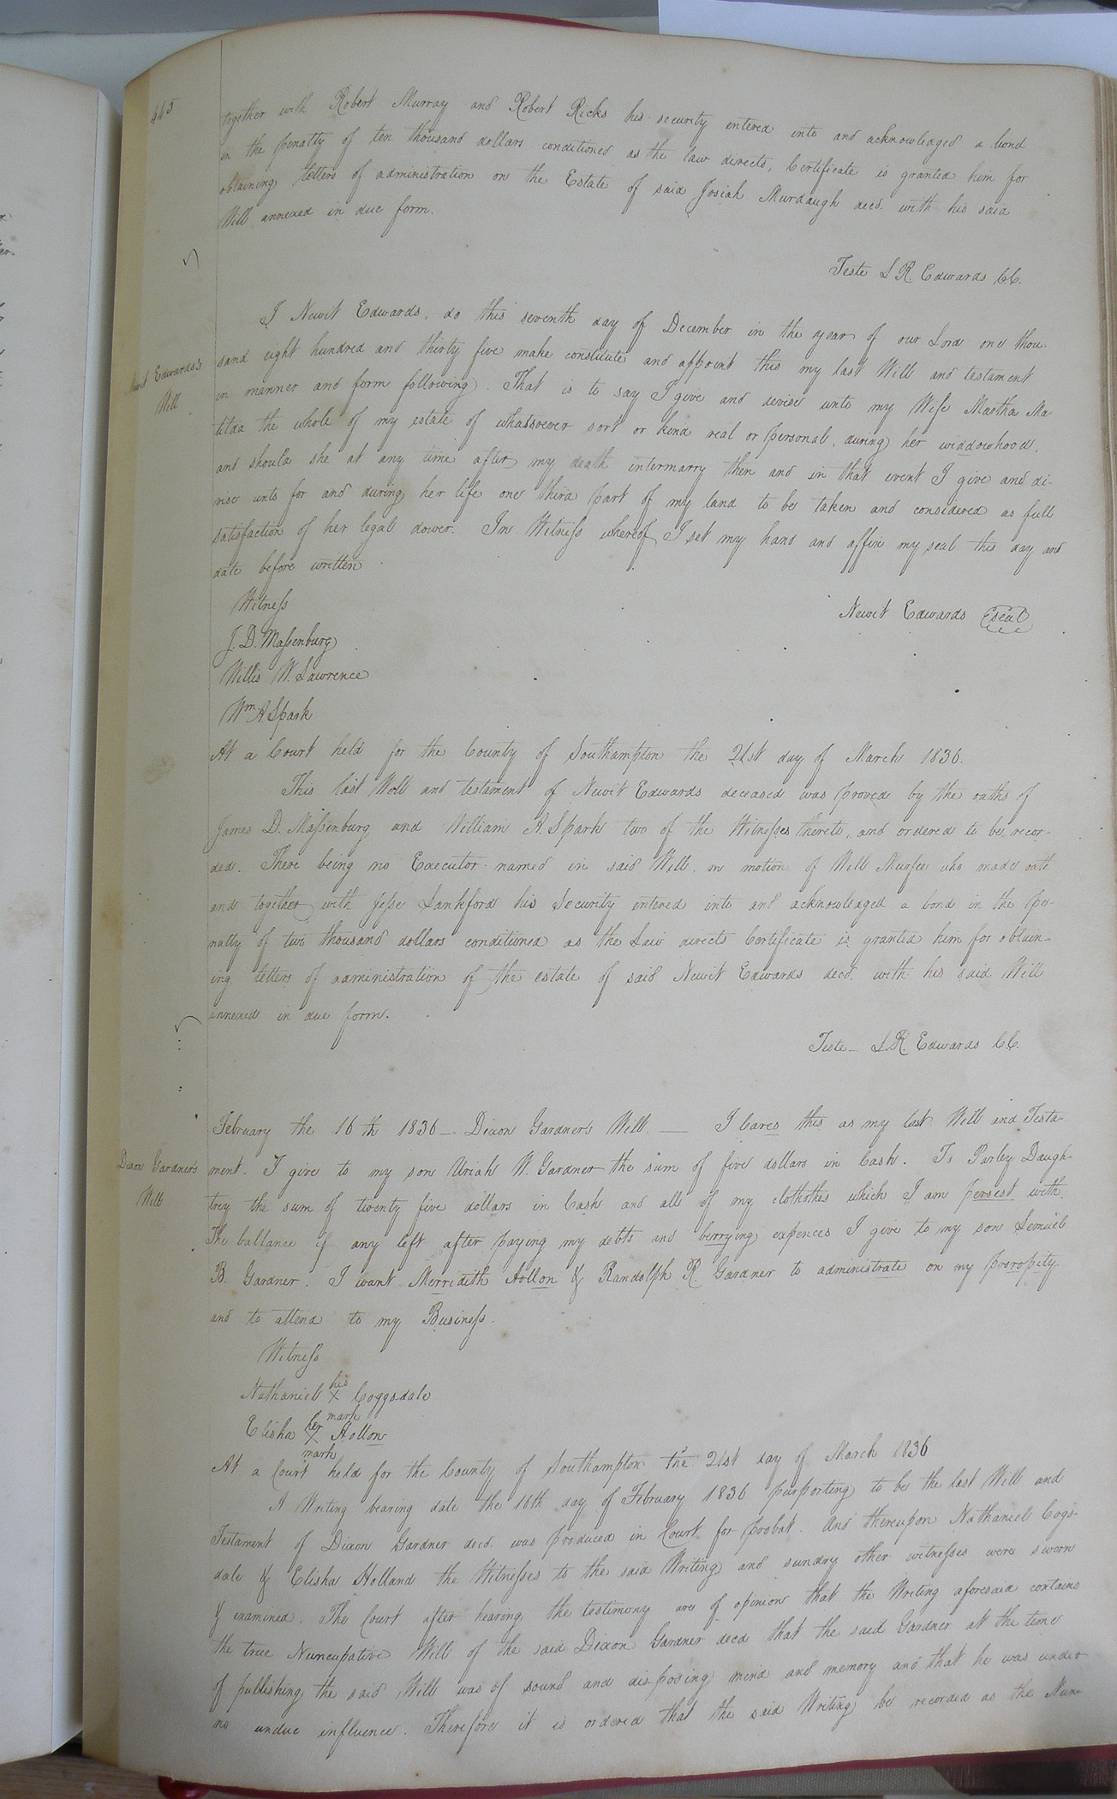 445
together with Robert Murray and Robert Ricks his security entered into and acknowledged a bond
in the penalty of ten thousand dollars conditioned as the law directs, Certificate is granted him for
obtaining letters of administration on the Estate of said Josiah Murdaugh decd. with his said
Will annexed in due form.
Teste L R Edwards CC.
I Newit Edwards, do this seventh day of December in the year of our Lord one thou-
sand eight hundred and thirty five make constitute and appoint this my last Will and testament
Edwards's
Will
in manner and form following. That is to say I give and devise unto my Wife Martha Ma
tilda the whole of my estate of whatsoever sort or kind real or personal, during her widdowhood,
and should she at any time after my death intermarry then and in that event I give and di-
vise unto for and during her life one third part of my land to be taken and considered as full
satisfaction of her legal dower. In Witness whereof I set my hand and affix my seal this day and
date before written
Witness
Newit Edwards seal
J. D. Massenburg
Willis W. Lawrence
Wm A Spark
At a Court held for the County of Southampton the 21st day of March 1836.
This last Will and testament of Newit Edwards deceased was proved by the oaths of
James D. Massenburg and William A. Spark two of the Witnesses thereto, and ordered to be recor-
ded. There being no Executor named in said Will, on motion of Will Murfee who made oath
and together with Jesse Lankford his Security entered into and acknowledged a bond in the pe-
nalty of two thousand dollars conditioned as the Law directs Certificate is granted him for obtain-
ing letters of administration of the estate of said Newit Edwards decd. with his said Will
annexed in due form.
Teste L.R. Edwards CC.
February the 16th 1836 - Dixon Gardner's Will - I leaves this as my last Will and Testa-
Dixon Gardner's
Will
ment. I give to my son Uriah W. Gardner the sum of five dollars in Cash. To Purley Daugh-
trey the sum of twenty five dollars in Cash and all of my clothothes which I am persest with.
The ballance if any left after paying my debts and berrying expences I give to my son Lemuel
B. Gardner. I want Merrideth Hollon & Randolph R. Gardner to administrate on my proropity
and to attend to my Business.
Witness
Nathaniel his X mark Coggsdale
Elisha her X mark Hollon
At a Court held for the County of Southampton the 21st day of March 1836
A Writing bearing date the 16th day of February 1836 purporting to be the last Will and
Testament of Dixon Gardner decd. was produced in Court for probat. And thereupon Nathaniel Cogs-
dale & Elisha Holland the Witnesses to the said Writing and sundry other witnesses were sworn
& examined. The Court after hearing the testimony are of opinion that the Writing aforesaid contains
the true Nuncupative Will of the said Dixon Gardner decd that the said Gardner at the time
of publishing the said Will was of sound and disposing mind and memory and that he was under
no undue influence. Therefore it is ordered that the said Writing be recorded as the Nun-